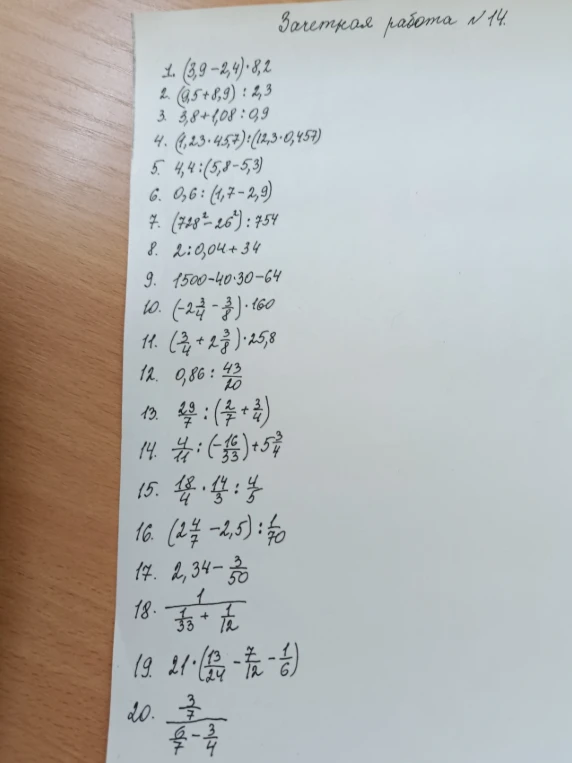 Зачетная работа №14.
1. (3,9-2,4)·8,2
2. (9,5+8,9) : 2,3
3. 3,8+1,08 : 0,9
4. (1,23·45,7):(12,3·0,457)
5. 4,4:(5,8-5,3)
6. 0,6 : (1,7-2,9)
7. (728²-26²) : 754
8. 2:0,04+34
9. 1500-40·30-64
10. (-2 3/4 - 3/8)·160
11. (3/4 + 2 3/8)·25,8
12. 0,86 : 43/20
13. 29/7 : (2/7 + 3/4)
14. 4/11 : (-16/33)+5 3/4
15. 18/4 · 14/3 : 4/5
16. (2 4/7 - 2,5) : 1/70
17. 2,34 - 3/50
18. 1/(1/33 + 1/12)
19. 21·(13/24 - 7/12 - 1/6)
20. (3/7)/(6/7 - 3/4)